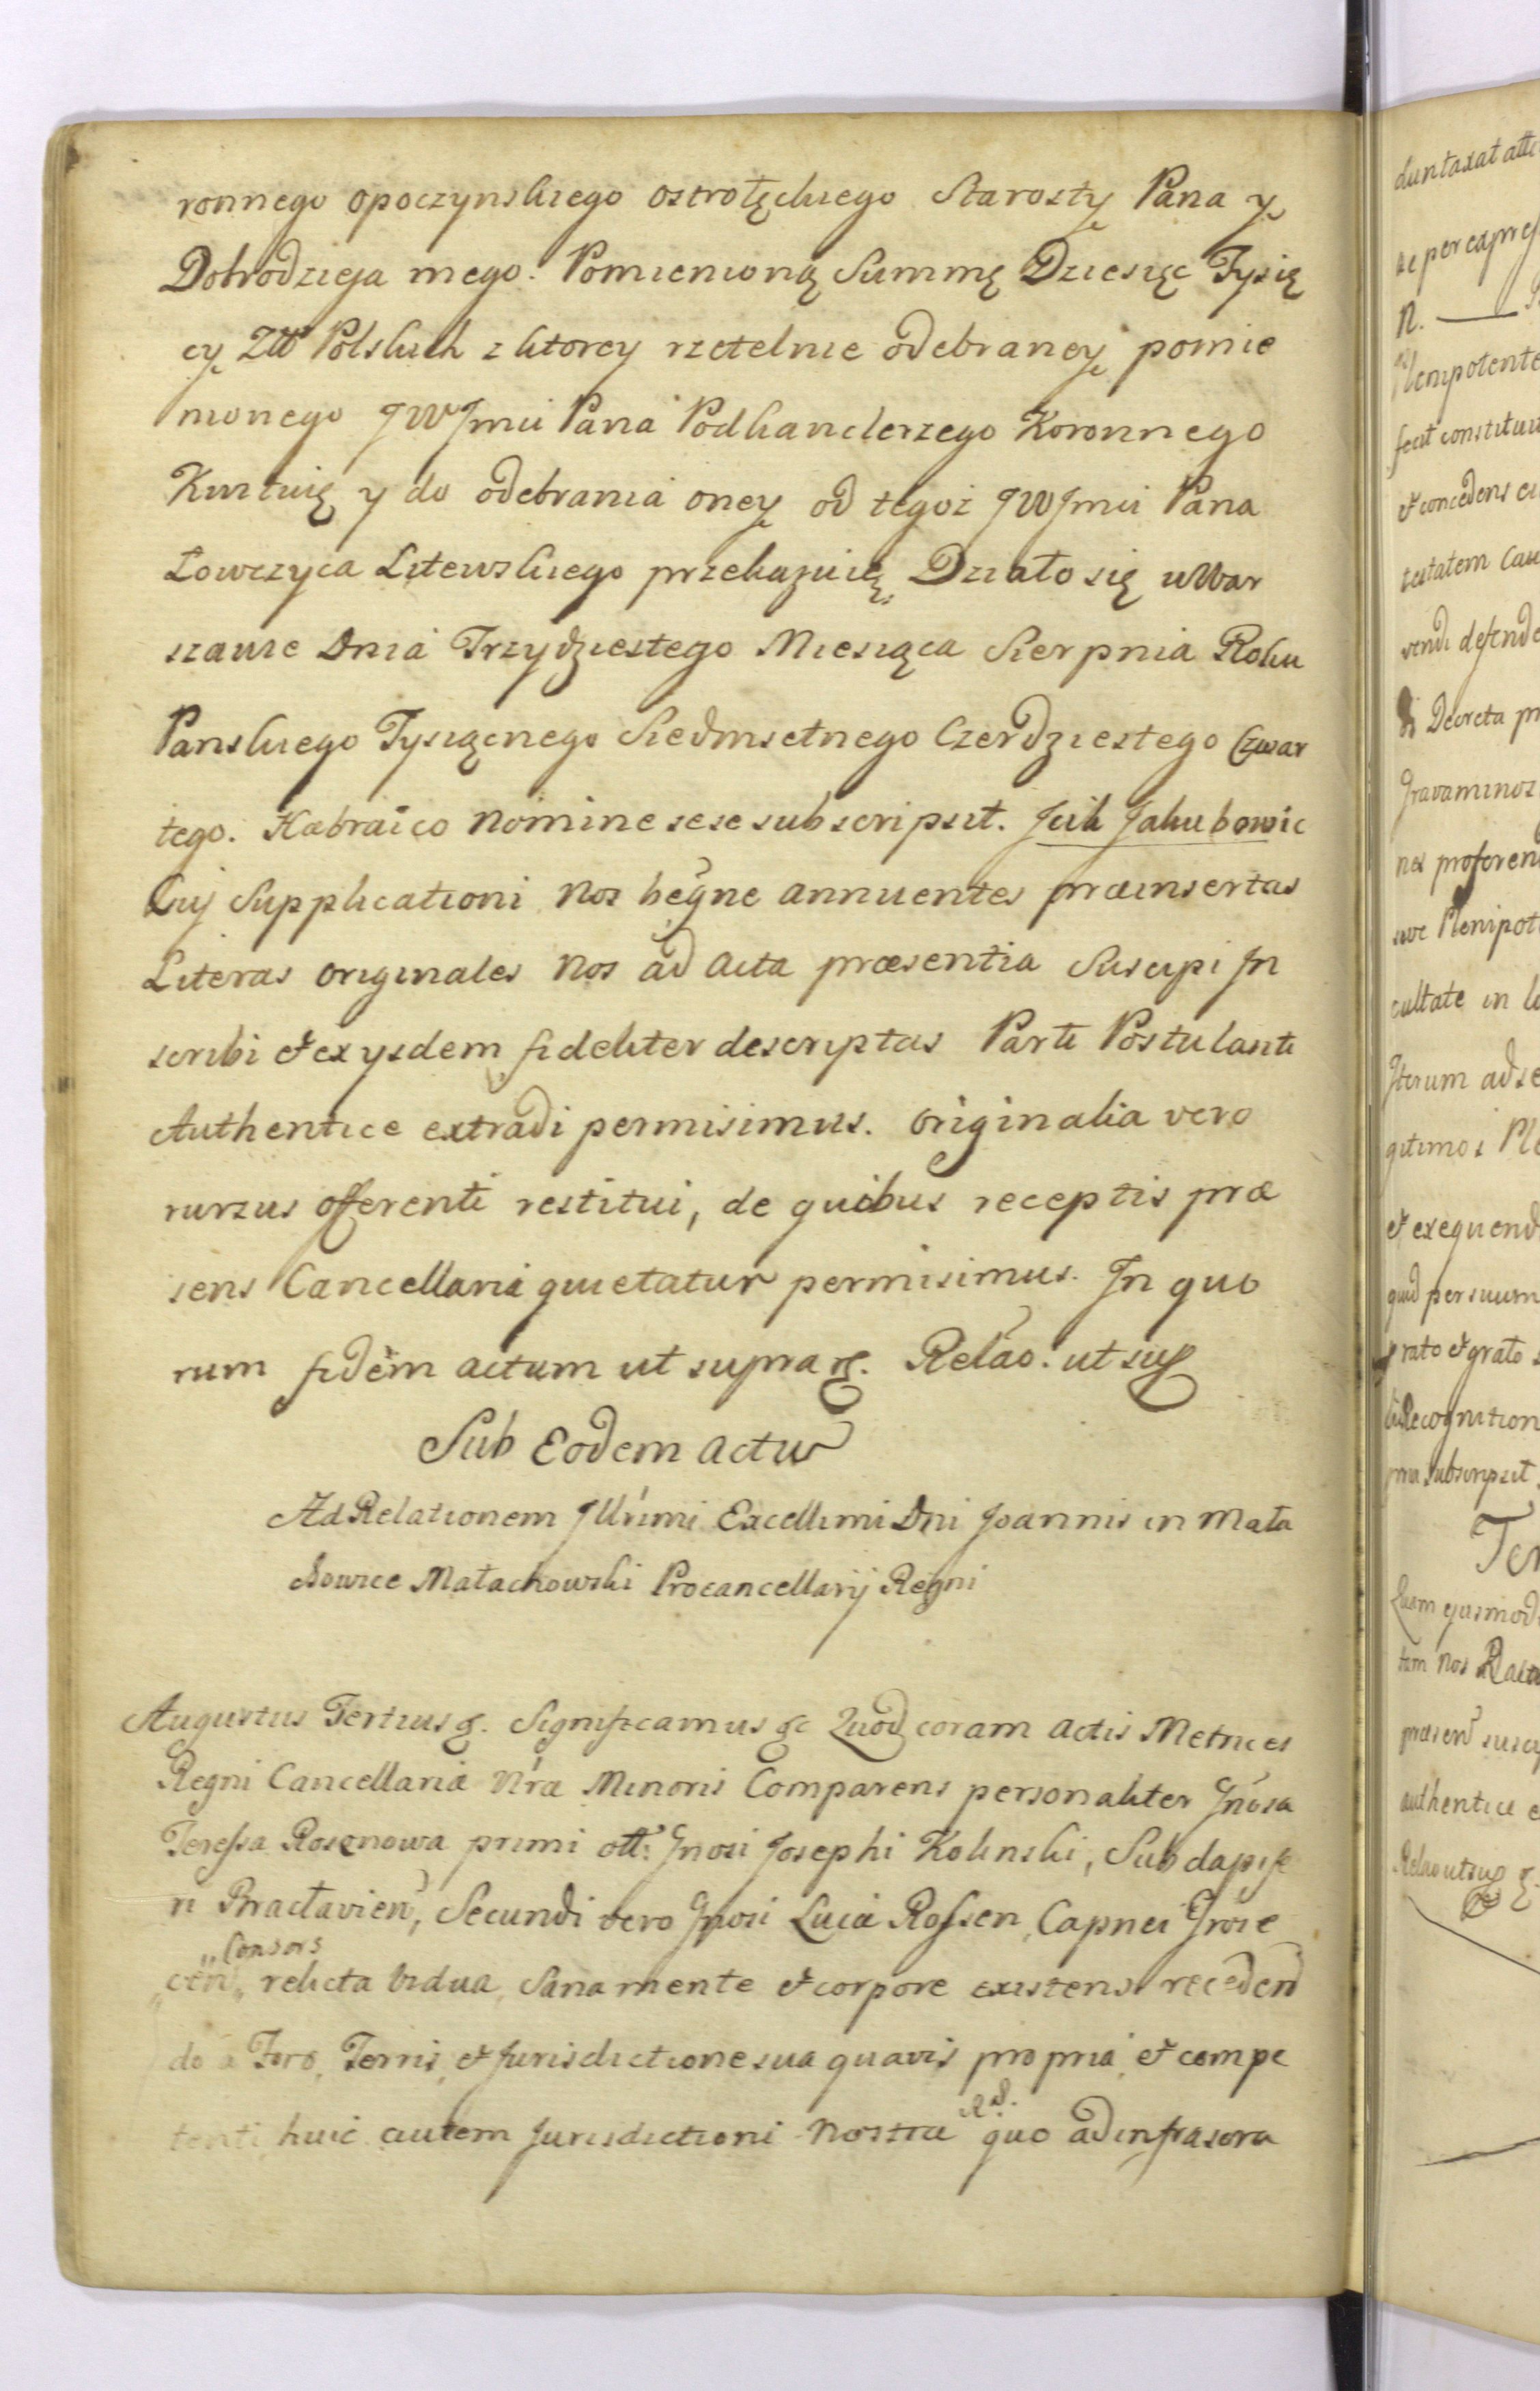 ronnego opoczynskiego ostrołęckiego Starosty Pana y
Dobrodzieja mego. Pomienioną Summę Dziesięc Tysię
cy Złł Polskich z ktorey rzetelnie odebraney pomie
nionego JWJmci Pana Podkanclerzego Koronnego
Kwituię y do odebrania oney od tegoż JWJmci Pana
Łowczyca Litewskiego przekazuię. Działo się w War
szawie Dnia Trzydziestego Miesiąca Sierpnia Roku
Panskiego Tysiącnego Siedmsetnego Czerdziestego Czwar
tego. Hæbraico Nomine sese subscripsit. Jcik Jakubowic
Cuj Supplicationi Nos begne annuentes præinsertas
Literas originales Nos ad Acta præsentia Suscipi Jn
scribi et ex ysdem fideliter descriptas Parti Postulanti
Authentice extradi permisimus. originalia vero
rurzus offerenti restitui, de quibus receptis præ
sens Cancellaria quietatur permisimus. Jn quo
rum fidem actum ut supra &. Relao. ut sup
Sub Eodem actu
Ad Relationem Jllrimi Excellmi Dni Joannis in Mała
chowice Małachowski Procancellarij Regni
Augustus Tertius &. Significamus &c Quod coram Actis Metrices
Regni Cancellariæ Nræ Minoris Comparens personaliter Gnosa
Teressa Rosenowa primi ott: Gnosi Josephi Kolinski, Subdapife
ri Bracłavien, Secundi vero Gnosi Lucæ Rossen, Capnei Grose
„Consors
„cen„ relicta Vidua, Sana mente et corpore existens receden
do a Foro, Terris, et Jurisdictione sua quavis propria, et compe
Rd.
tenti huic autem Jurisdictioni Nostræ quo ad infrascra
duntaxat atti
se per expres
N. —
Plenipotente
fecit constituit
et concedens ei
testatem Cau
vendi defende
Decreta pr
Gravaminos
nes proferen
sive Plenipot
cultate in lo
Jterum ad se
gitimos Ple
et exequend
quid per suum
rato et grato s
Recognition
subscripsit
Ten
Quam ejusmod
tam Nos
præsen susci
authentice e
Relao ut sup &.